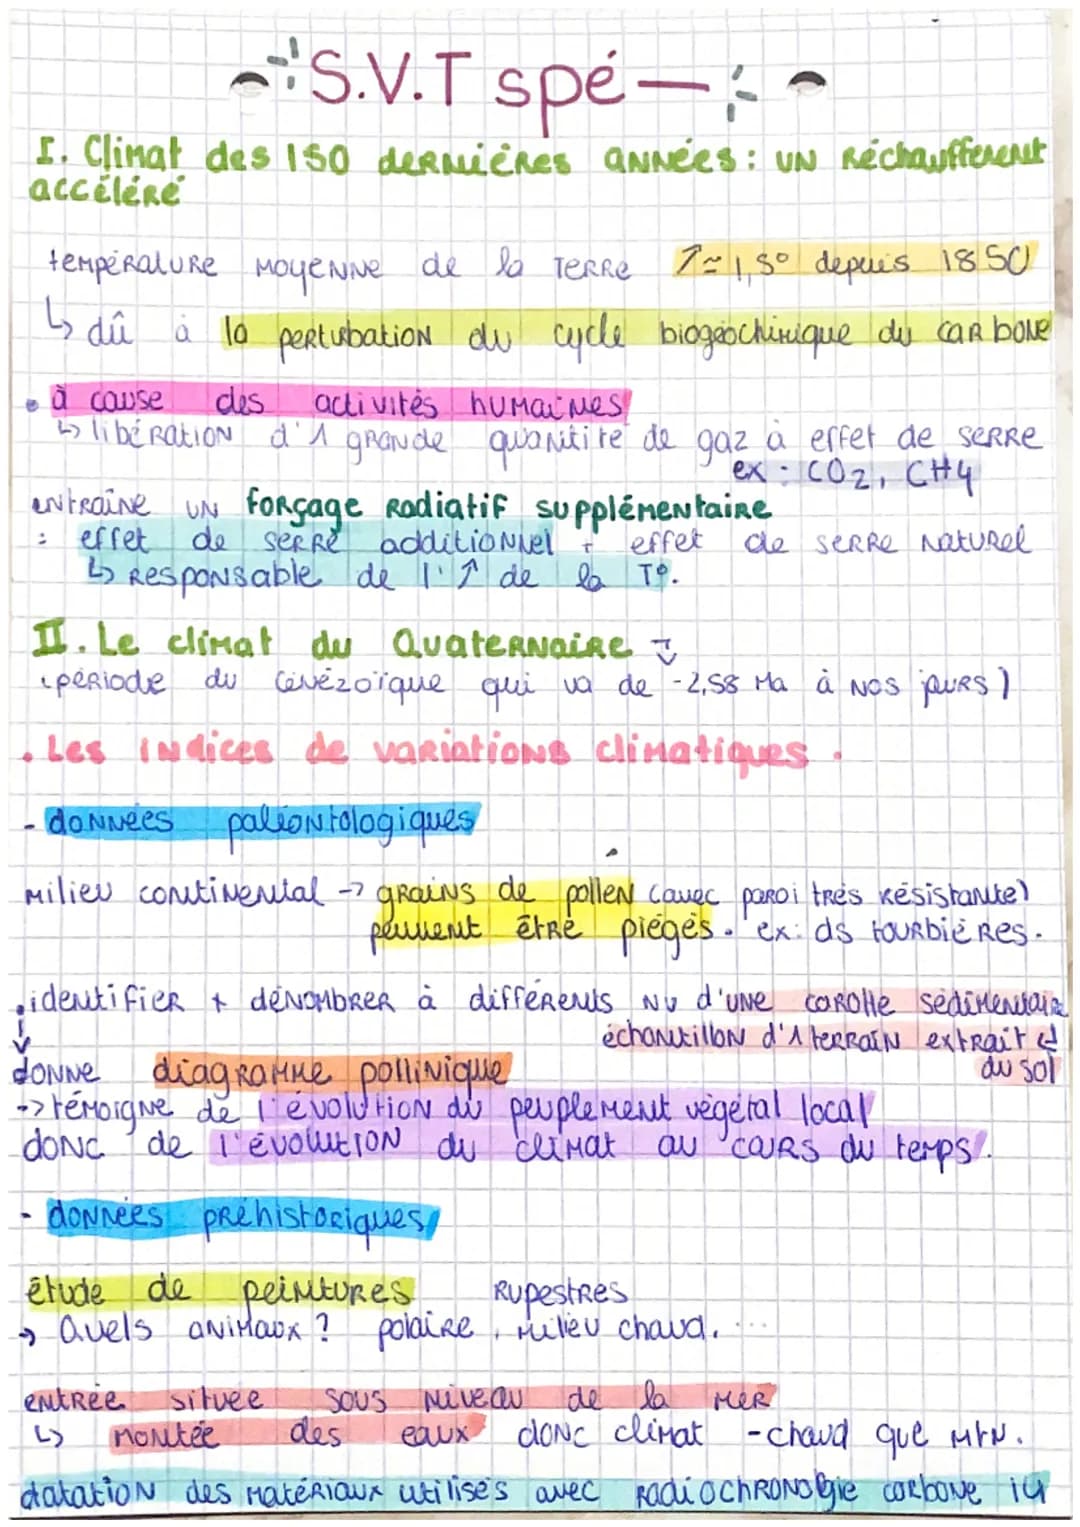 S.V.T spé
I. Climat des 150 dernières années : un réchauffement
accéléré
température moyenne de la Terre ↑≃ 1,5° depuis 1850
↳ dû à la perturbation du cycle biogéochimique du carbone
• à cause des activités humaines
↳ libération d'1 grande quantité de gaz à effet de serre
ex : CO2, CH4
entraîne un forçage radiatif supplémentaire
: effet de serre additionnel + effet de serre naturel
↳ responsable de l'↑ de la T°.
II. Le climat du Quaternaire
(période du Cénézoïque qui va de -2,58 Ma à nos jours)
. Les indices de variations climatiques .
- données paléontologiques
Milieu continental -> grains de pollen (avec paroi très résistante)
peuvent être piégés. ex: ds tourbières.
. identifier + dénombrer à différents nv d'une carotte sédimentaire
échantillon d'1 terrain extrait ↲
donne diagramme pollinique du sol
-> témoigne de l'évolution du peuplement végétal local
donc de l'évolution du climat au cours du temps.
- données préhistoriques
étude de peintures rupestres
→ Quels animaux ? polaire, milieu chaud. ...
entrée située sous niveau de la mer
↳ montée des eaux donc climat - chaud que mtn.
datation des matériaux utilisés avec radiochronologie carbone 14